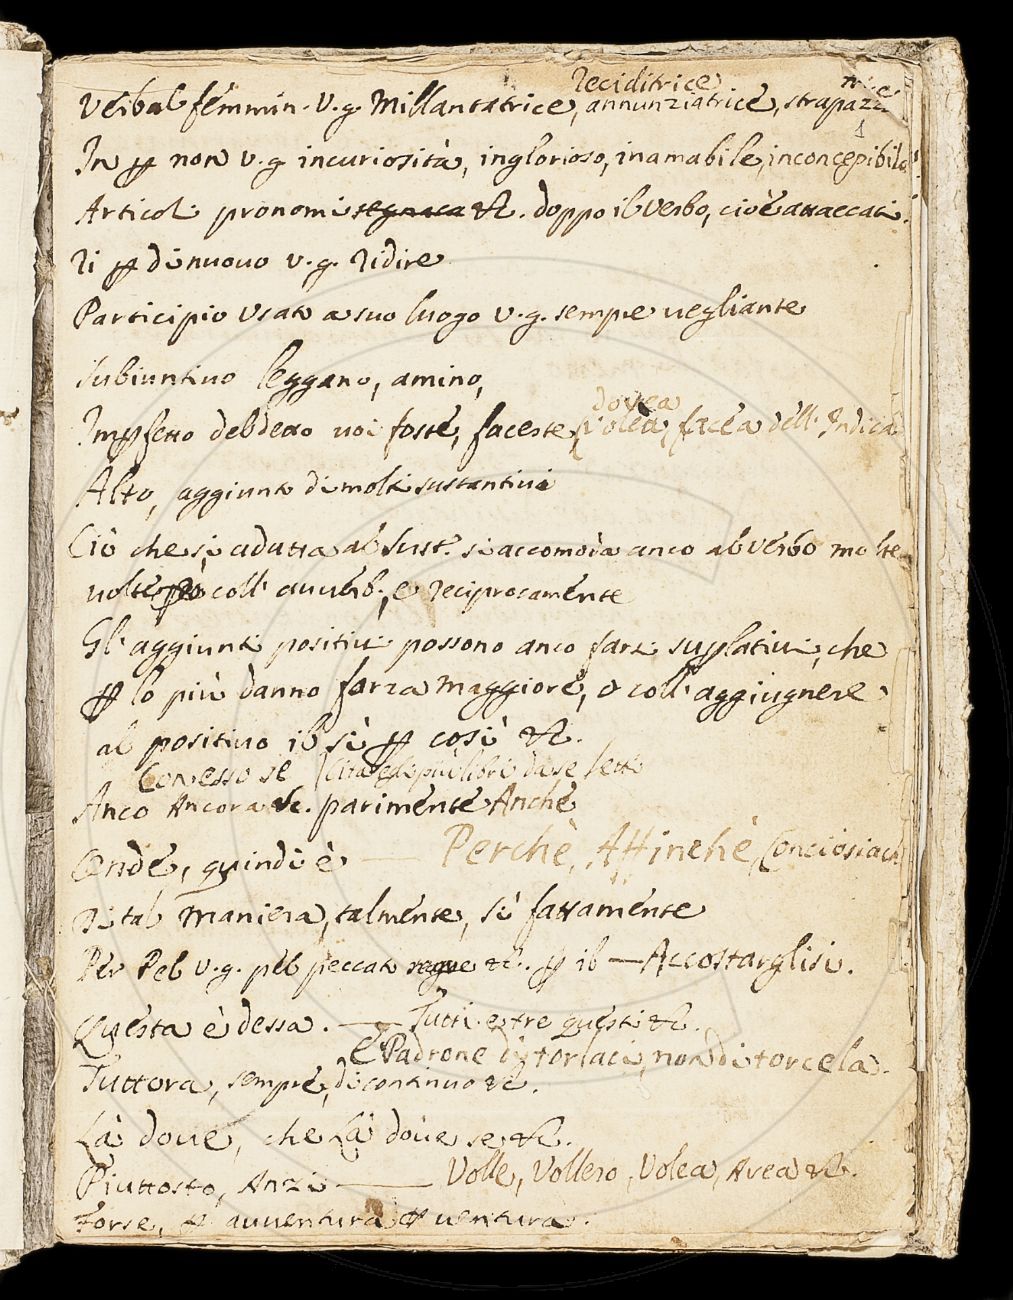 reciditrice
Verbal femmin. v.g. Millantatrice, annunziatrice, strapazza
trice
1
In ꝑ non v.g. incuriosità, inglorioso, inamabile, inconcepibile
Articoli pronomi segnaca &c. doppo il verbo, cioè attaccati.
Ri ꝑ di nuovo v.g. ridire
Participio usato a suo luogo v.g. sempre uegliante
Subiuntiuo leggano, amino,
dovea
Impfetto debdetto uoi foste, faceste, volea, facea dell' Indica
Alto, aggiunto di molti sustantiui
Ciò che si adatta al sust. si accomoda anco al verbo molte
uolte coll' auuerb., e reciprocamente
Gl' aggiunti positiui possono anco farsi suplatiui, che
ꝑ lo più danno forza maggiore, o coll' aggiugnere
al positiuo il sì ꝑ così &c.
Con esso se di più libri da se letti
Anco Ancora &c. parimente Anche
Onde, quindi è — Perchè, Affinchè, Conciosiach
Di tal maniera, talmente, sì fattamente
Per Pel v.g. pel peccato &c. ꝑ il — Accostarglisi.
Questa è dessa. — Tutti e tre questi &c.
E Padrone di torlaci, non di torcela.
Tuttora, sempre, di continuo &c.
Là doue, che là doue se &c.
Piuttosto, Anzi — Volle, Vollero, Volea, Avea &c.
Forse, ꝑ auuentura ꝑ uentura.